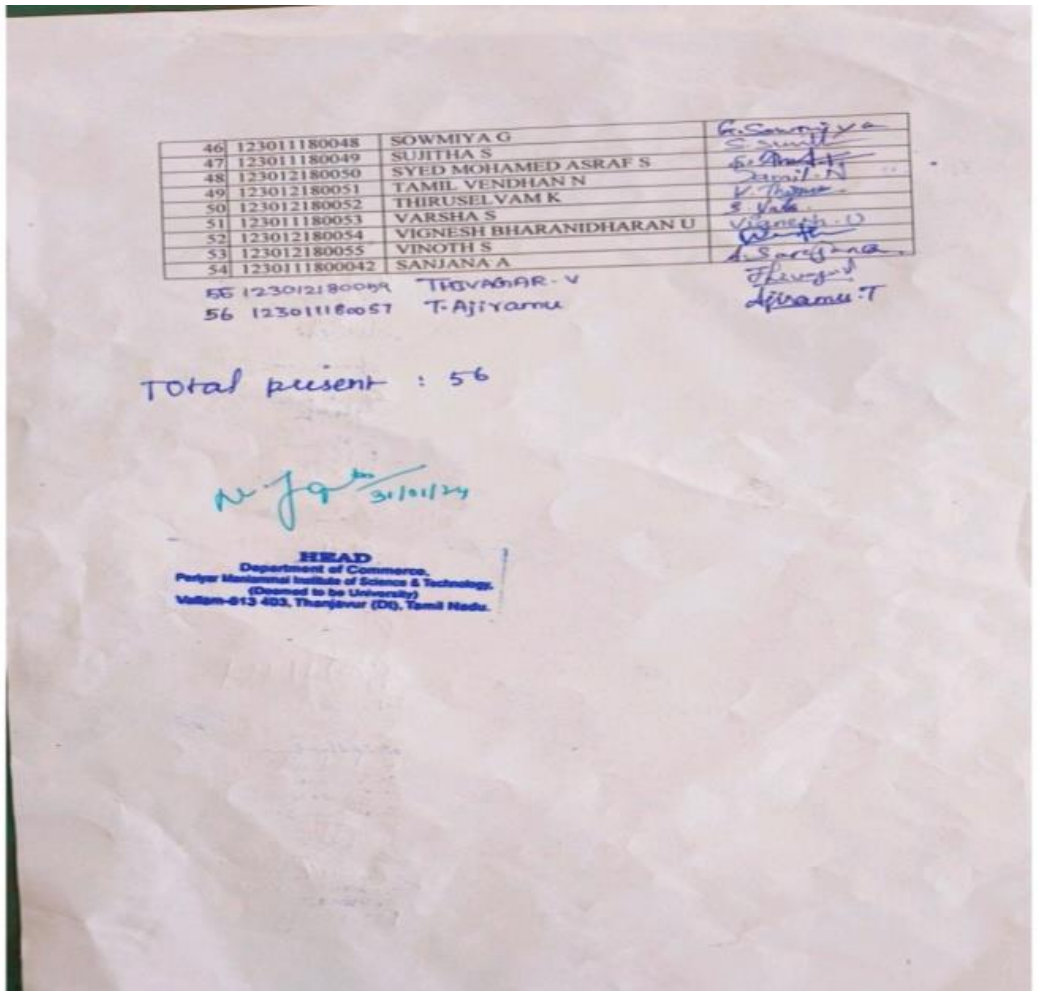 46 123011180048 SOWMIYA G G.Sowmiya
47 123011180049 SUJITHA S
48 123012180050 SYED MOHAMED ASRAF S
49 123012180051 TAMIL VENDHAN N Tamil.N
50 123012180052 THIRUSELVAM K
51 123011180053 VARSHA S
52 123012180054 VIGNESH BHARANIDHARAN U Vignesh.U
53 123012180055 VINOTH S
54 1230111800042 SANJANA A A.Sanjana.
55 THIVAGAR.V
56 123011180057 T.Ajiramu Ajiramu.T
Total present : 56
31/01/24
HEAD
Department of Commerce,
Periyar Maniammai Institute of Science & Technology,
(Deemed to be University)
Vallam-613 403, Thanjavur (Dt), Tamil Nadu.